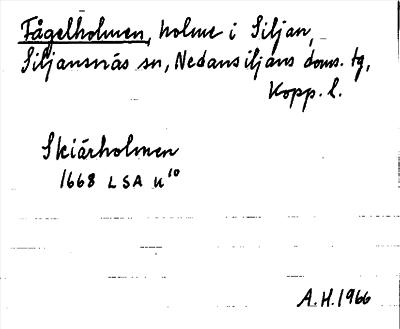 Fågelholmen, holme i Siljan,
Siljansnäs sn, Nedansiljans doms. tg,
Kopp. l.
Skiärholmen
1668 LSA u¹⁰
A.H. 1966